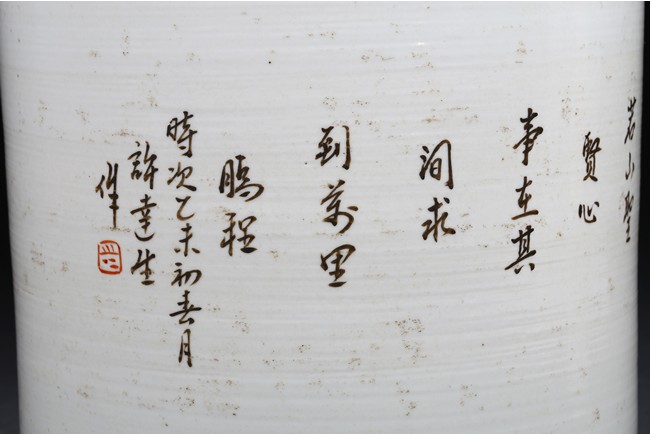 若山聖
賢心
事在其
间求
到萬里
鵬程
時次乙未初春月
許達生
作